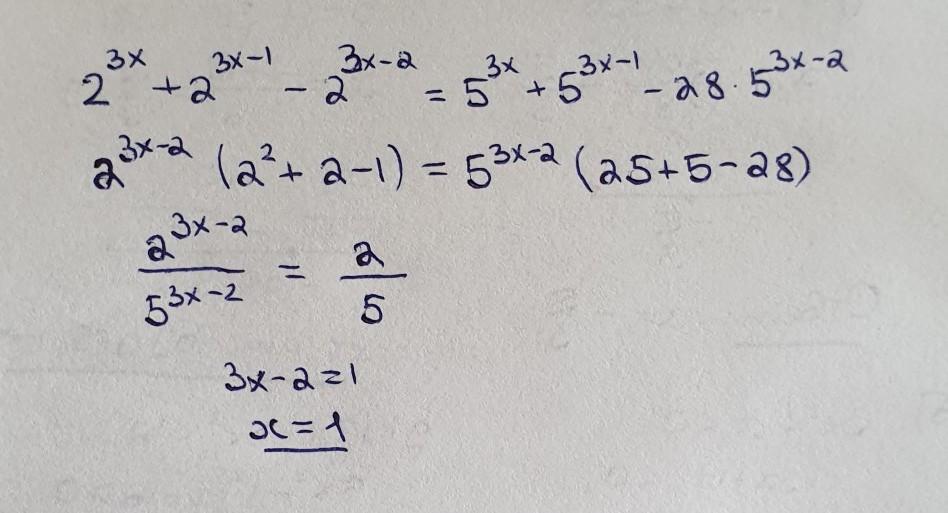 2^{3x} + 2^{3x-1} - 2^{3x-2} = 5^{3x} + 5^{3x-1} - 28 · 5^{3x-2}
2^{3x-2} (2^2 + 2 - 1) = 5^{3x-2} (25 + 5 - 28)
\frac{2^{3x-2}}{5^{3x-2}} = \frac{2}{5}
3x - 2 = 1
x = 1